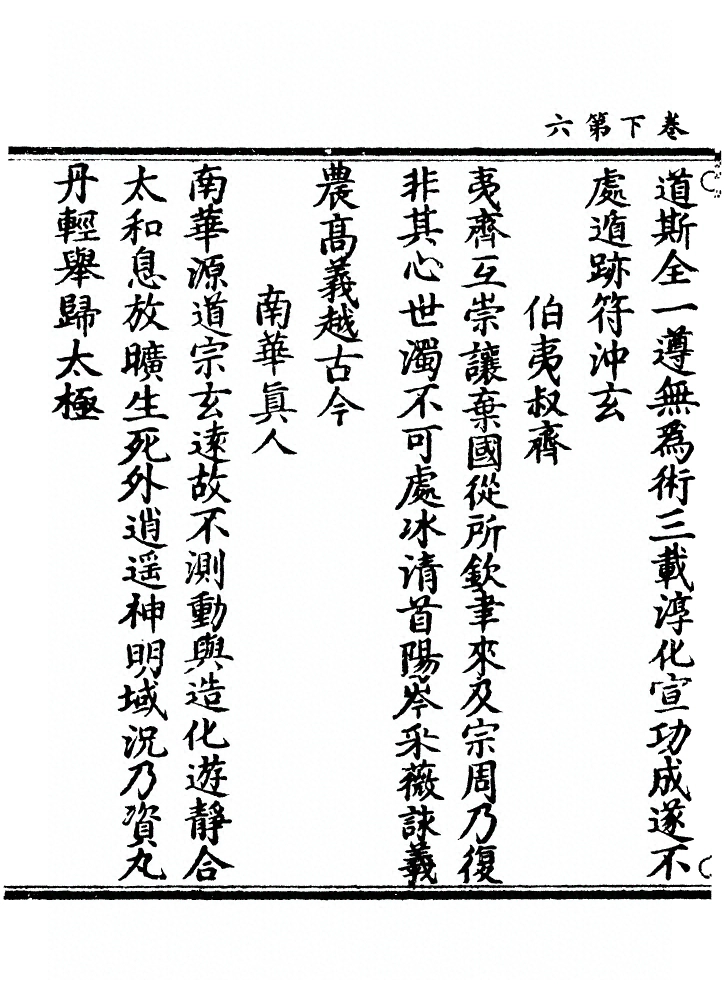 卷下第六
道斯全一遵無爲術三載淳化宣功成遂不
處遁跡符沖玄
伯夷叔齊
夷齊互崇讓棄國從所欽聿來及宗周乃復
非其心世濁不可處冰清首陽岑采薇詠羲
農高義越古今
南華眞人
南華源道宗玄遠故不測動與造化遊靜合
太和息放曠生死外逍遥神明域況乃資丸
丹輕舉歸太極